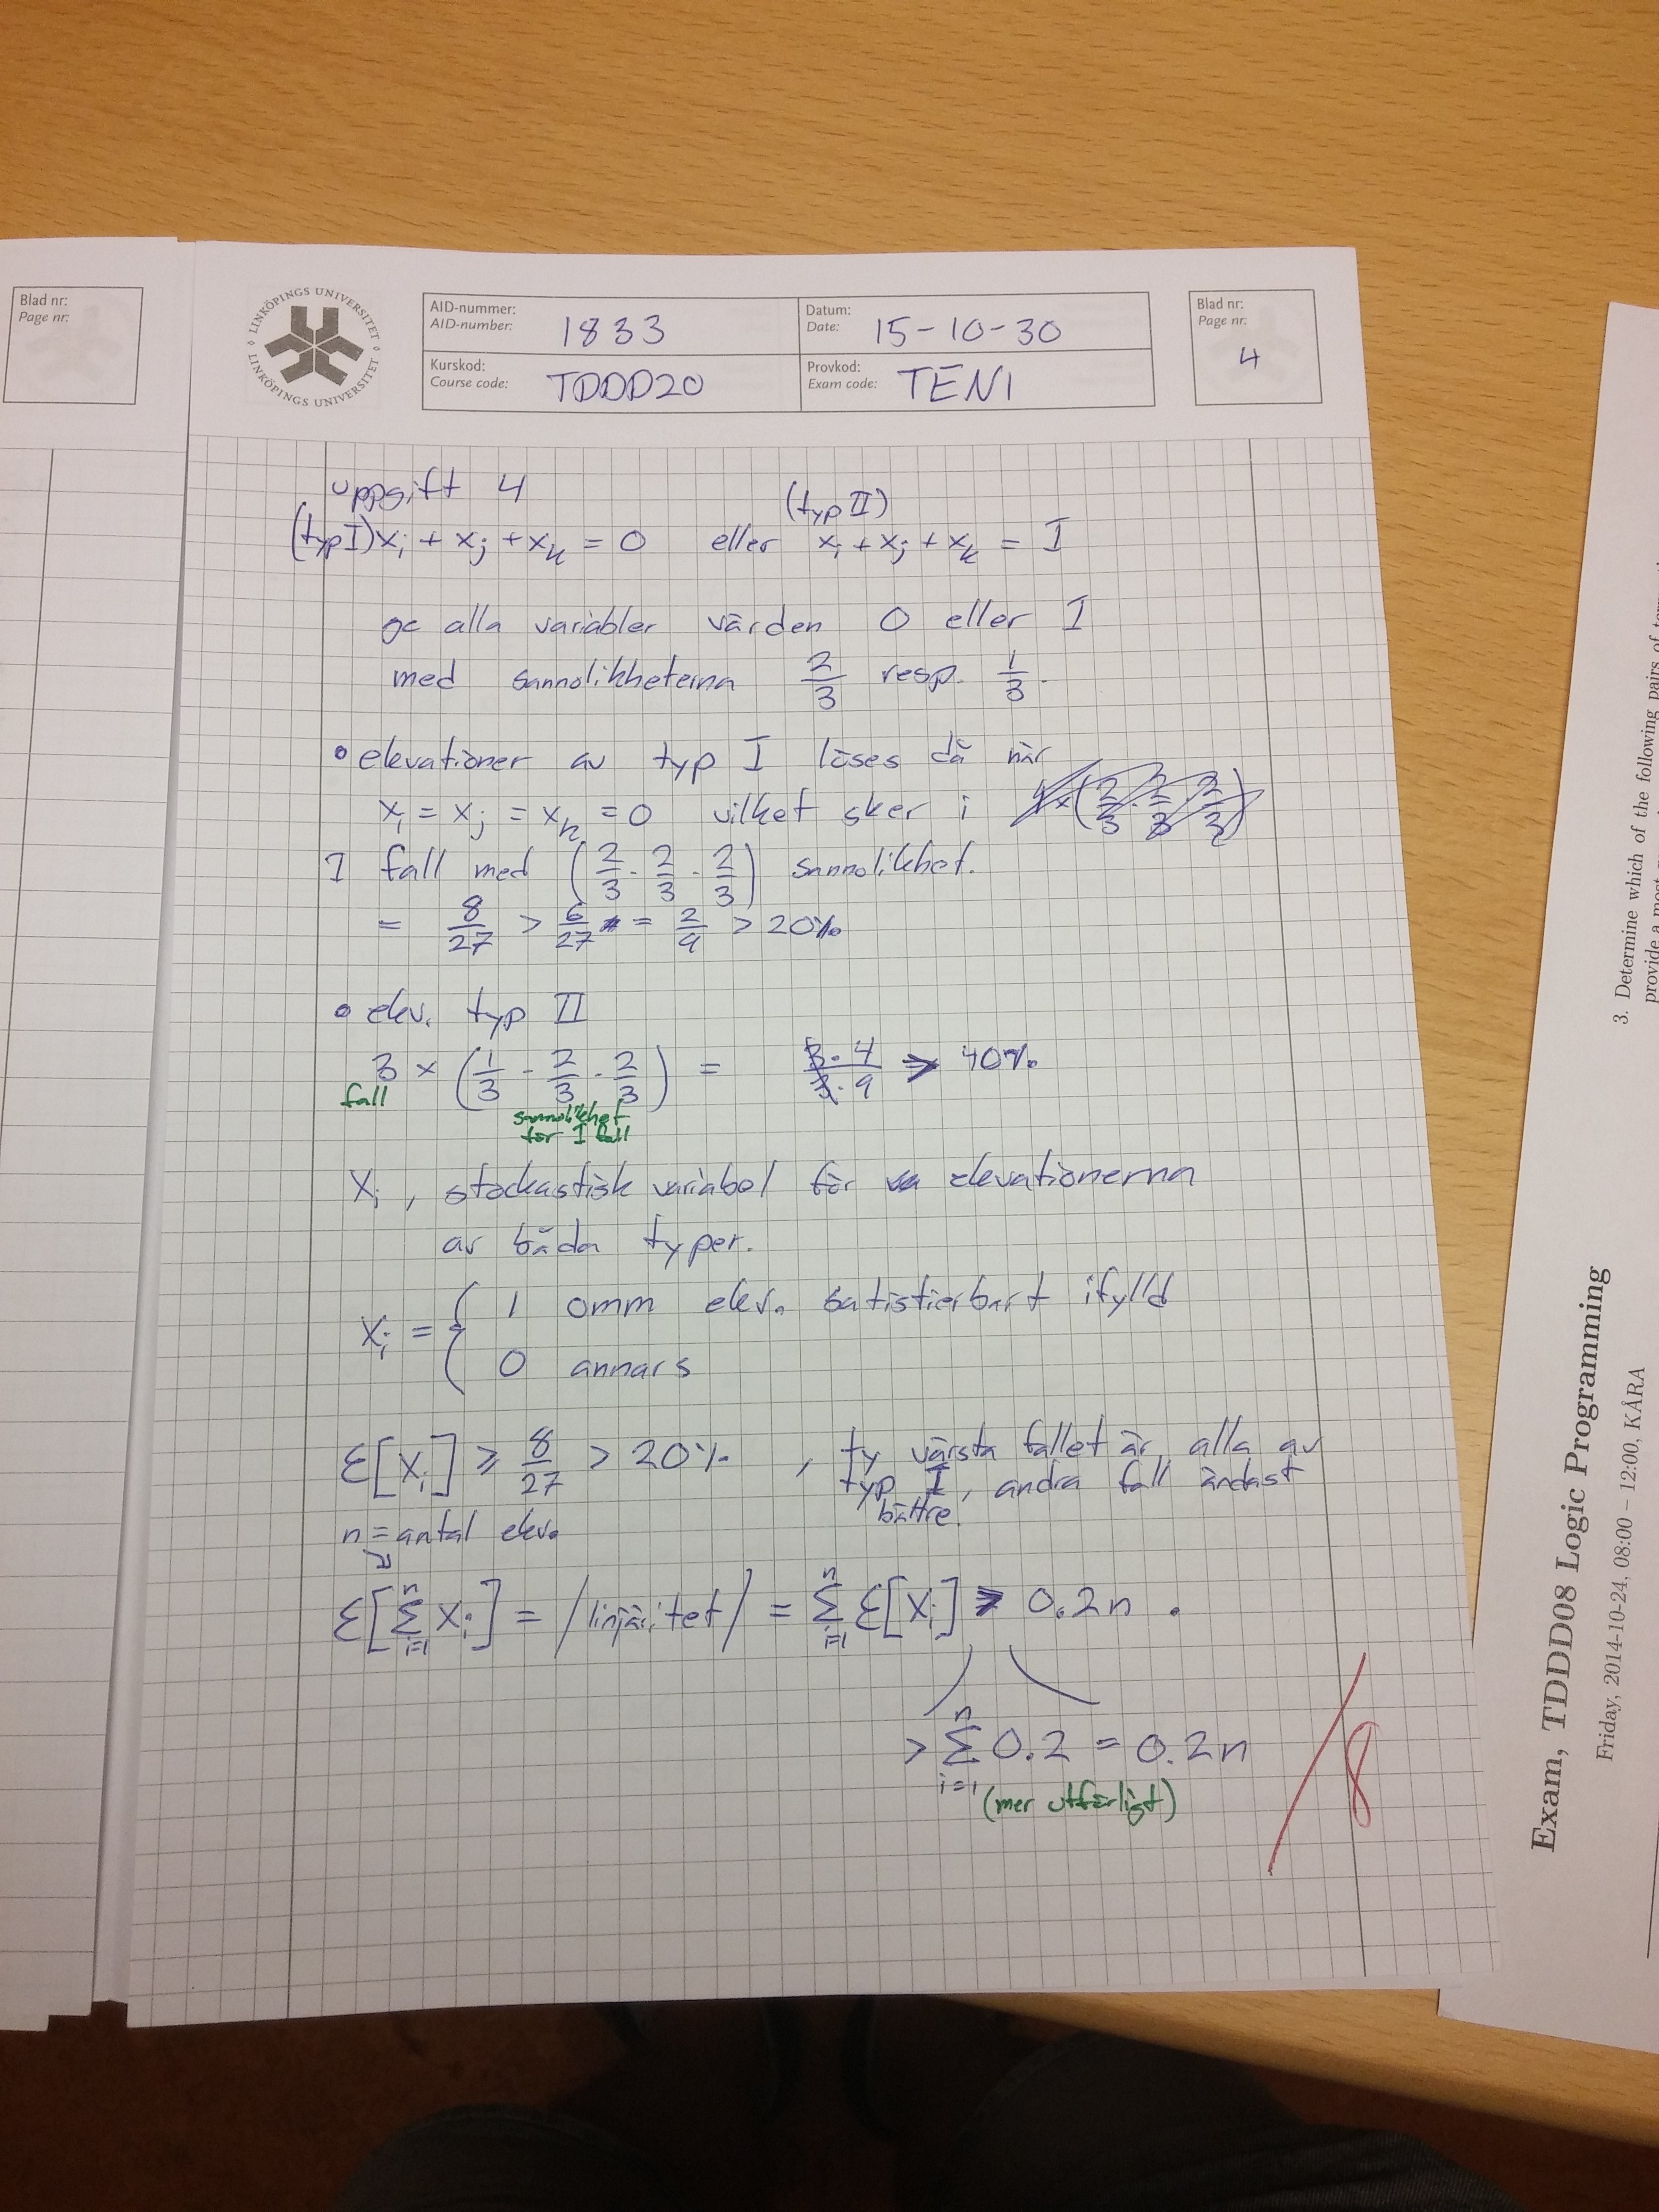 Blad nr:
Page nr:
LINKÖPINGS UNIVERSITET
LINKÖPINGS UNIVERSITET
AID-nummer:
AID-number: 1833
Datum:
Date: 15-10-30
Kurskod:
Course code: TDDD20
Provkod:
Exam code: TEN1
Blad nr:
Page nr:
4
uppgift 4
(typ II)
(typ I) xi + xj + xk = 0 eller xi + xj + xk = I
ge alla variabler värden 0 eller I
med sannolikheterna 2/3 resp. 1/3.
• ekvationer av typ I löses då när
xi = xj = xk = 0 vilket sker i
I fall med (2/3 · 2/3 · 2/3) sannolikhet.
= 8/27 > 6/27 = 2/9 > 20%
• ekv. typ II
3 × (1/3 · 2/3 · 2/3) = 3·4/3·9 > 40%
fall
sannolikhet
för I fall
Xi, stockastisk variabel för ekvationerna
av båda typer.
Xi = { 1 omm ekv. satisfierbart ifylld
0 annars
E[Xi] ≥ 8/27 > 20% , ty värsta fallet är alla av
typ I, andra fall ändast
bättre.
n = antal ekv.
E[Σ_{i=1}^{n} Xi] = /linjäritet/ = Σ_{i=1}^{n} E[Xi] > 0.2n .
> Σ_{i=1}^{n} 0.2 = 0.2n
(mer utförligt)
/8
3. Determine which of the following pairs of
provide a most
Exam, TDDD08 Logic Programming
Friday, 2014-10-24, 08:00 – 12:00, KÅRA